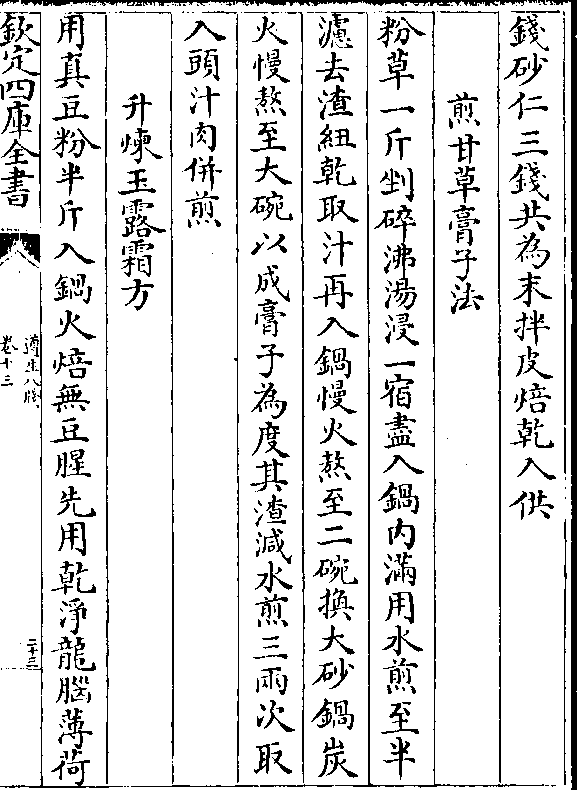 錢砂仁三錢共為末拌皮焙乾入供
煎甘草膏子法
粉草一斤剉碎沸湯浸一宿盡入鍋內滿用水煎至半
濾去渣紐乾取汁再入鍋慢火熬至二碗換大砂鍋炭
火慢熬至大碗以成膏子為度其渣減水煎三兩次取
入頭汁肉併煎
升煉玉露霜方
用真豆粉半斤入鍋火焙無豆腥先用乾淨龍腦薄荷
欽定四庫全書
遵生八牋
卷十三
二十三